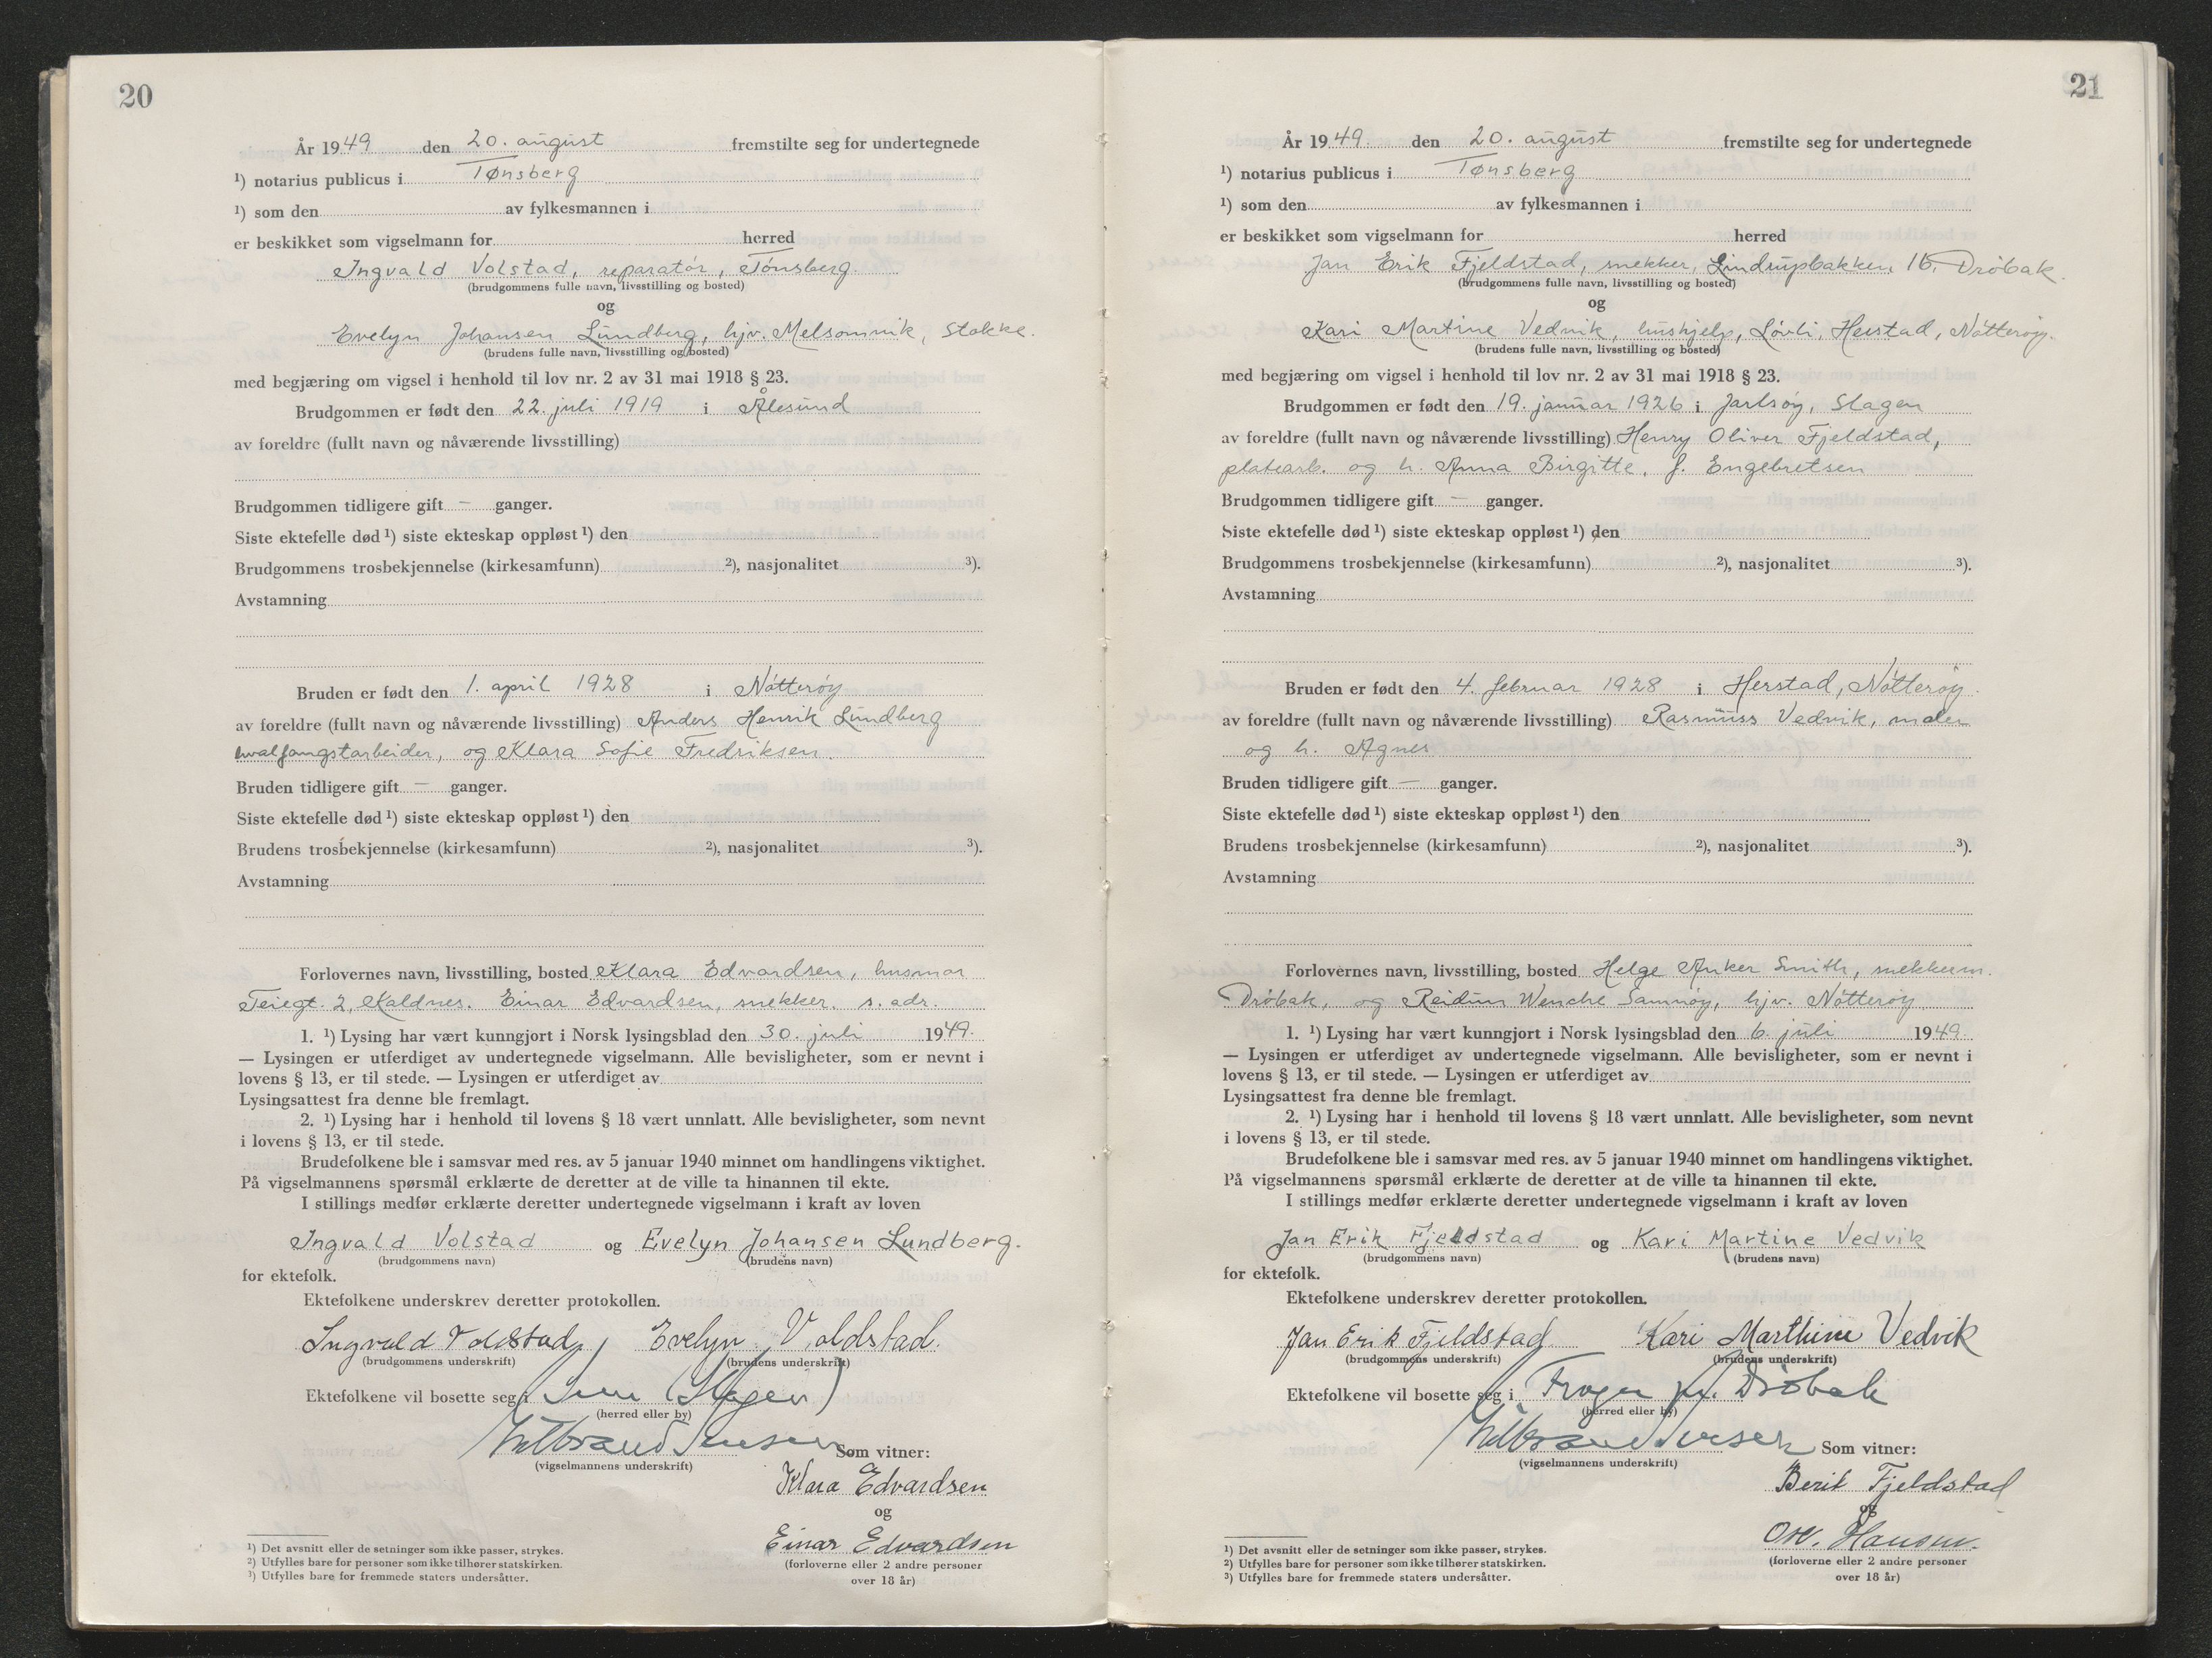 20
År 1949 den 20. august fremstilte seg for undertegnede
¹) notarius publicus i Tønsberg
¹) som den av fylkesmannen i
er beskikket som vigselmann for herred
Ingvald Volstad, reparatør, Tønsberg.
(brudgommens fulle navn, livsstilling og bosted)
og
Evelyn Johansen Lundberg, hjv. Melsomvik, Stokke.
(brudens fulle navn, livsstilling og bosted)
med begjæring om vigsel i henhold til lov nr. 2 av 31 mai 1918 § 23.
Brudgommen er født den 22. juli 1919 i Ålesund
av foreldre (fullt navn og nåværende livsstilling)
Brudgommen tidligere gift — ganger.
Siste ektefelle død ¹) siste ekteskap oppløst ¹) den
Brudgommens trosbekjennelse (kirkesamfunn) ²), nasjonalitet ³).
Avstamning
Bruden er født den 1. april 1928 i Nøtterøy
av foreldre (fullt navn og nåværende livsstilling) Anders Henrik Lundberg
hvalfangstarbeider, og Klara Sofie Fredriksen.
Bruden tidligere gift — ganger.
Siste ektefelle død ¹) siste ekteskap oppløst ¹) den
Brudens trosbekjennelse (kirkesamfunn) ²), nasjonalitet ³).
Avstamning
Forlovernes navn, livsstilling, bosted Klara Edvardsen, husmor
Teiegt. 2, Kaldnes. Einar Edvardsen, snekker, s. adr.
1. ¹) Lysing har vært kunngjort i Norsk lysingsblad den 30. juli 1949.
— Lysingen er utferdiget av undertegnede vigselmann. Alle bevisligheter, som er nevnt i
lovens § 13, er til stede. — Lysingen er utferdiget av
Lysingsattest fra denne ble fremlagt.
2. ¹) Lysing har i henhold til lovens § 18 vært unnlatt. Alle bevisligheter, som nevnt
i lovens § 13, er til stede.
Brudefolkene ble i samsvar med res. av 5 januar 1940 minnet om handlingens viktighet.
På vigselmannens spørsmål erklærte de deretter at de ville ta hinannen til ekte.
I stillings medfør erklærte deretter undertegnede vigselmann i kraft av loven
Ingvald Volstad og Evelyn Johansen Lundberg.
(brudgommens navn) (brudens navn)
for ektefolk.
Ektefolkene underskrev deretter protokollen.
Ingvald Voldstad Evelyn Voldstad.
(brudgommens underskrift) (brudens underskrift)
Ektefolkene vil bosette seg i Sem (Slagen)
(herred eller by)
Som vitner:
(vigselmannens underskrift)
Klara Edvardsen
og
Einar Edvardsen
(forloverne eller 2 andre personer
over 18 år)
¹) Det avsnitt eller de setninger som ikke passer, strykes.
²) Utfylles bare for personer som ikke tilhører statskirken.
³) Utfylles bare for fremmede staters undersåtter.
21
År 1949. den 20. august fremstilte seg for undertegnede
¹) notarius publicus i Tønsberg
¹) som den av fylkesmannen i
er beskikket som vigselmann for herred
Jan Erik Fjeldstad, snekker, Lindrupbakken 16, Drøbak.
(brudgommens fulle navn, livsstilling og bosted)
og
Kari Martine Vedvik, hushjelp, Løvli, Herstad, Nøtterøy.
(brudens fulle navn, livsstilling og bosted)
med begjæring om vigsel i henhold til lov nr. 2 av 31 mai 1918 § 23.
Brudgommen er født den 19. januar 1926 i Jarlsøy, Slagen
av foreldre (fullt navn og nåværende livsstilling) Henry Oliver Fjeldstad,
platearb. og h. Anna Birgitte, f. Engebretsen
Brudgommen tidligere gift — ganger.
Siste ektefelle død ¹) siste ekteskap oppløst ¹) den
Brudgommens trosbekjennelse (kirkesamfunn) ²), nasjonalitet ³).
Avstamning
Bruden er født den 4. februar 1928 i Herstad, Nøtterøy.
av foreldre (fullt navn og nåværende livsstilling) Rasmuss Vedvik, maler
og h. Agnes
Bruden tidligere gift — ganger.
Siste ektefelle død ¹) siste ekteskap oppløst ¹) den
Brudens trosbekjennelse (kirkesamfunn) ²), nasjonalitet ³).
Avstamning
Forlovernes navn, livsstilling, bosted Helge Anker Smith, snekkerm.
Drøbak, og Reidun Wenche Samnøy, hjv. Nøtterøy
1. ¹) Lysing har vært kunngjort i Norsk lysingsblad den 6. juli 1949.
— Lysingen er utferdiget av undertegnede vigselmann. Alle bevisligheter, som er nevnt i
lovens § 13, er til stede. — Lysingen er utferdiget av
Lysingsattest fra denne ble fremlagt.
2. ¹) Lysing har i henhold til lovens § 18 vært unnlatt. Alle bevisligheter, som nevnt
i lovens § 13, er til stede.
Brudefolkene ble i samsvar med res. av 5 januar 1940 minnet om handlingens viktighet.
På vigselmannens spørsmål erklærte de deretter at de ville ta hinannen til ekte.
I stillings medfør erklærte deretter undertegnede vigselmann i kraft av loven
Jan Erik Fjeldstad og Kari Martine Vedvik
(brudgommens navn) (brudens navn)
for ektefolk.
Ektefolkene underskrev deretter protokollen.
Jan Erik Fjeldstad Kari Marthine Vedvik
(brudgommens underskrift) (brudens underskrift)
Ektefolkene vil bosette seg i Frogn pr. Drøbak
(herred eller by)
Som vitner:
(vigselmannens underskrift)
Berit Fjeldstad
og
Hansen.
(forloverne eller 2 andre personer
over 18 år)
¹) Det avsnitt eller de setninger som ikke passer, strykes.
²) Utfylles bare for personer som ikke tilhører statskirken.
³) Utfylles bare for fremmede staters undersåtter.